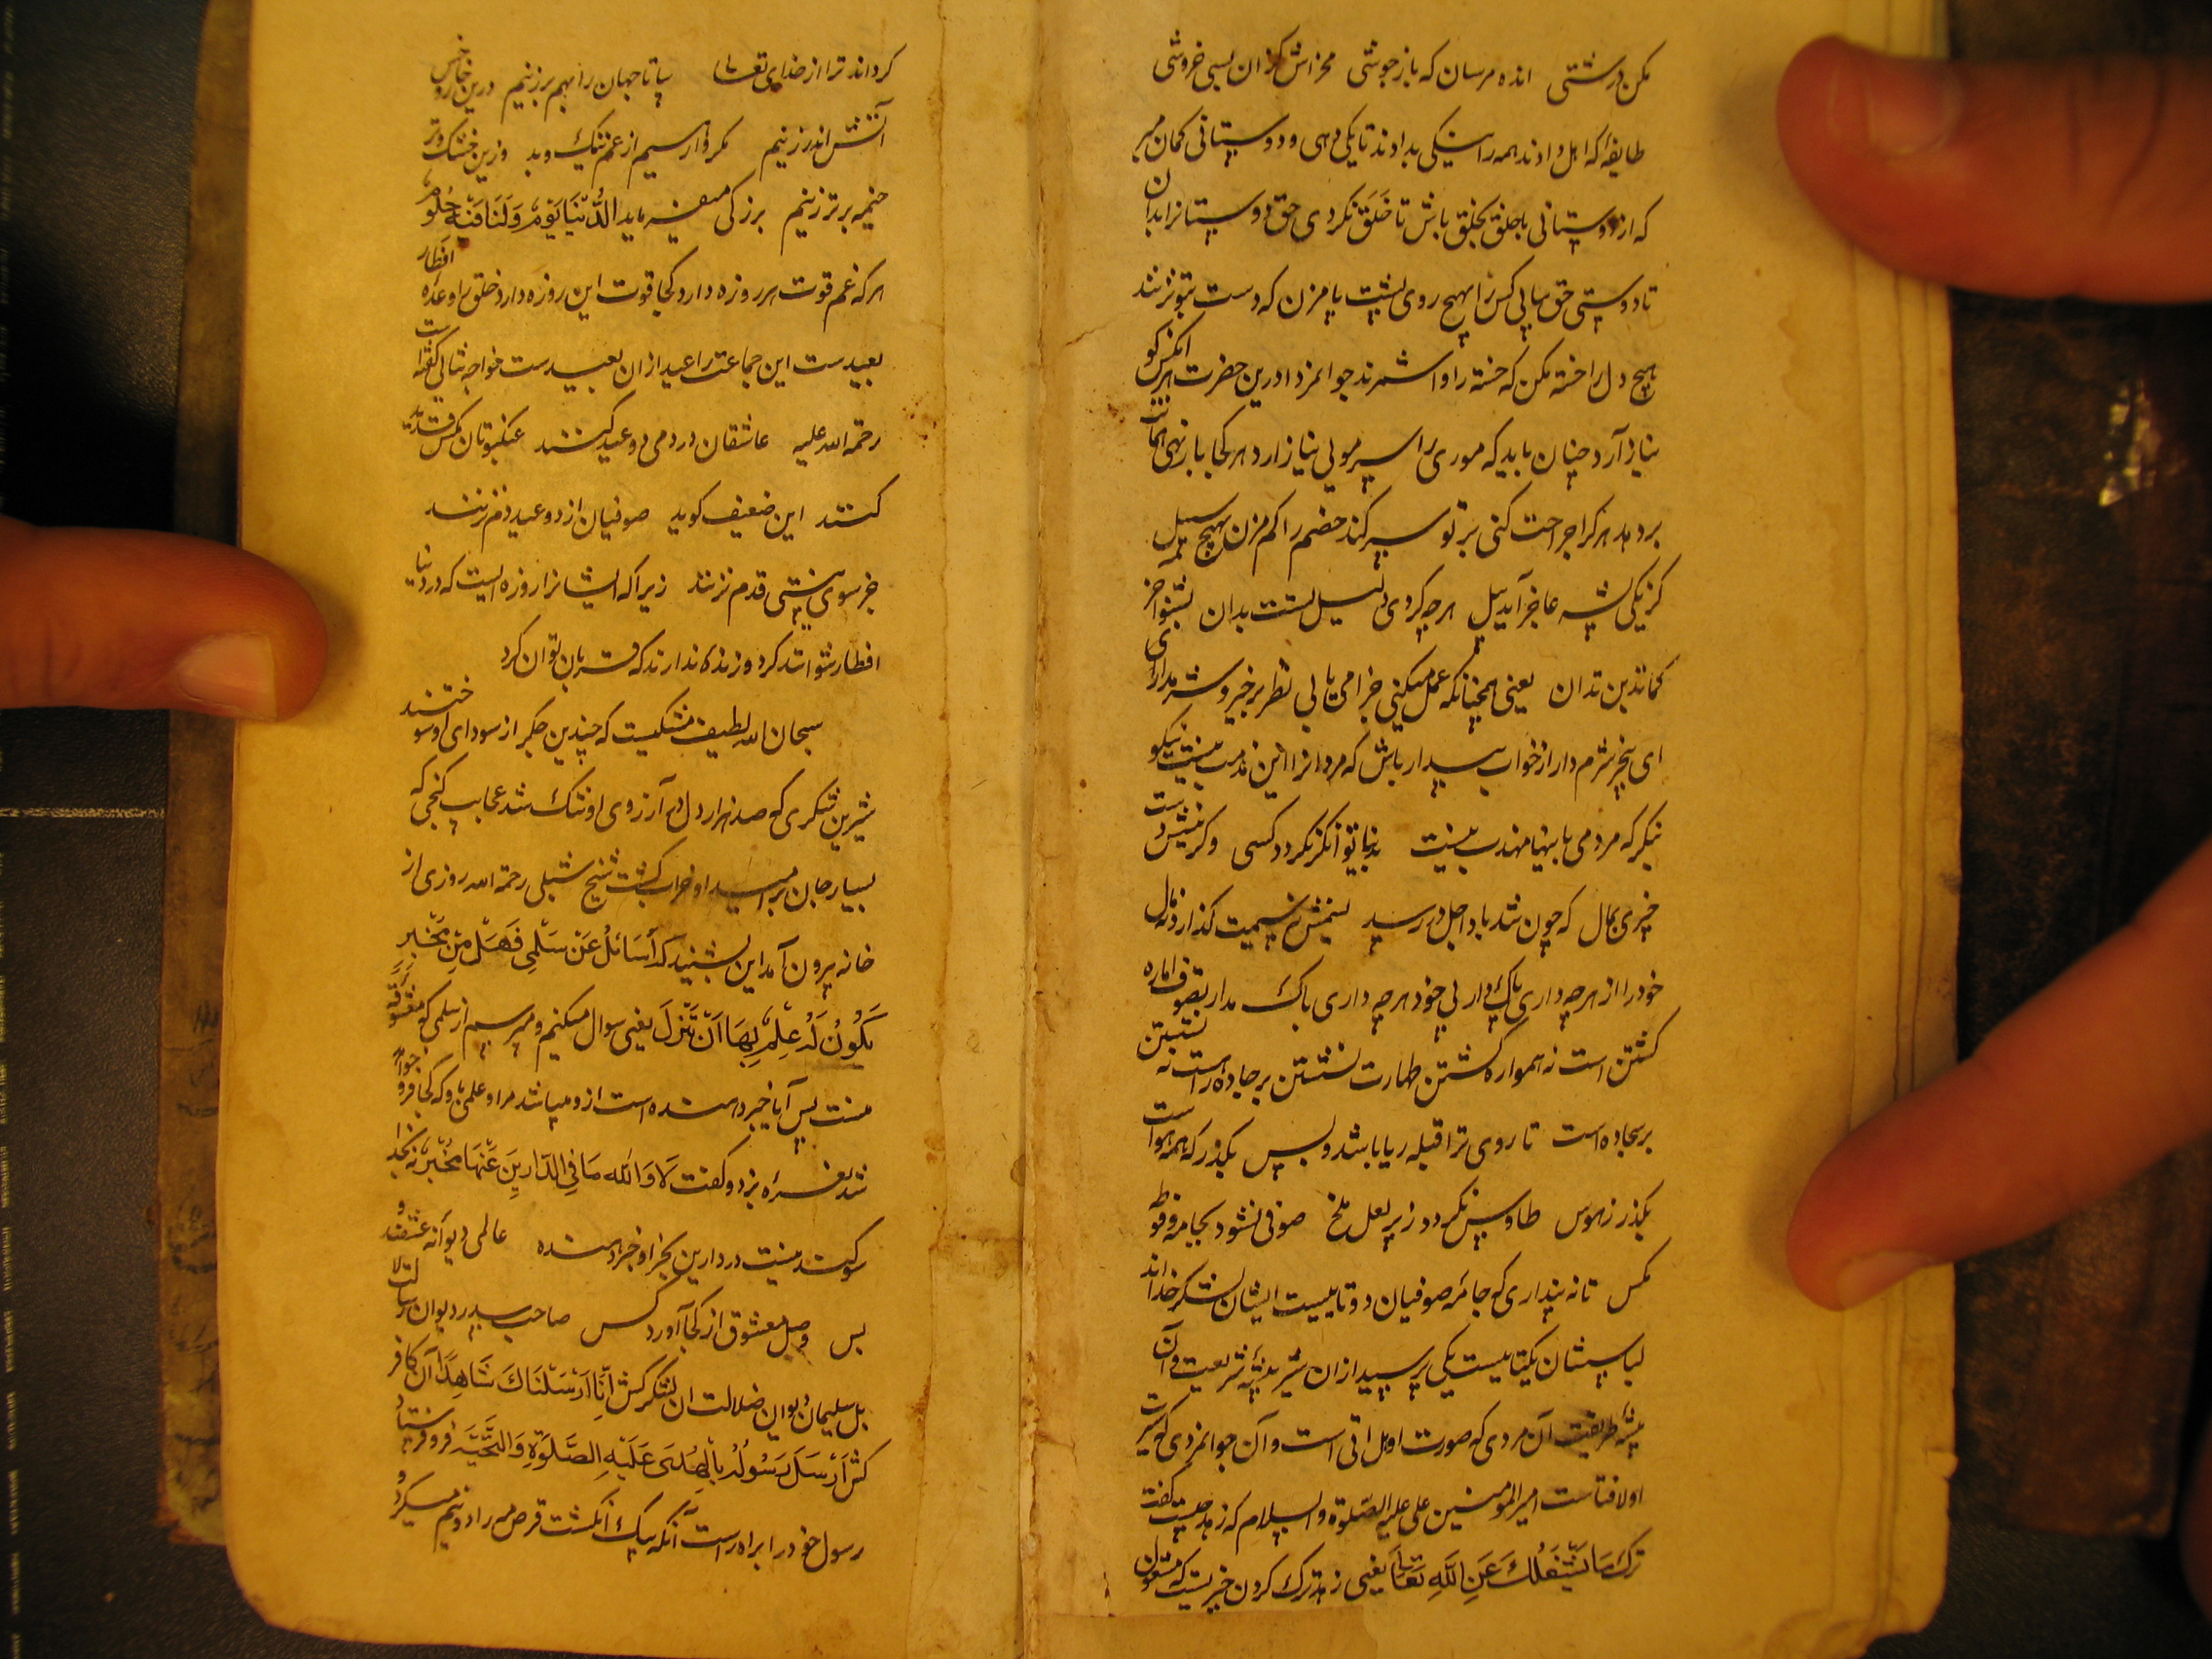 مکن درشتی انده مرسان که باز جوشی مخراش کزان بسی خروشی
طایفه‌ا که اهل دادند همه را نیکی بدادند تا یکی دهی و دوستانی کمان مبر
که از دوستانی با خلق بخلق باش تا خلق نکردی حق دوستانرا بدان
تا دوستی حق بیابی کس را بهیچ روی پشت پا مزن که دست بتو نزنند
هیچ دل را خسته مکن که خسته را وا شمرند جوانمردا درین حضرت هر کو
نیاز آرد چنان باید که موری را سر مویی نیازارد هر کجا بار نهی
بر دهد هر کرا جراحت کنی بر تو سیر کند خصم را کم مزن بهیچ سبیل
کز یکی پشه عاجز آید پیل هر چه کردی دلیل تست بدان بشنو آخر
کما تدین تدان یعنی همچنانکه عمل میکنی جزا می یابی نظر بر خیر و شر مدار
ای بیخبر شرم دار از خواب بیدار باش که مردانرا این مذهب نیست نیکو
بنگر که مردمی با بنها مهذب نیست بدنیا توانگر نکردد کسی
چیزی بمال که چون شد باد اجل در رسید
خود را از هر چه داری پاک دار بی خود هر چه داری باک مدار تصوف اماره
کشتن است نه همواره کشتن طهارت شستن بر جاده راست نه نشستن
بر سجاده است تا روی ترا قبله ریا باشد و بس بگذر که همه هواست
بگذر ز هوس طاوس نکردد زیر لعل ملخ صوفی نشود بجامه و فوطه
مکس تا نه پنداری که جامهٔ صوفیان دو تاییست ایشان لشکر خدا اند
لباسشان یکتاییست یکی پرسید از آن شیر بیشهٔ شریعت و آن
بیشهٔ طریقت آن مردی که صورت او هل اتی است و آن جوانمردی که سیرت
او لافتاست امیر المومنین علی علیه الصلوة و السلام که زهد چیست کفت
ترک ما یشغلک عن الله تعالی یعنی زهد ترک کردن چیزیست که مشغول
کرداند ترا از خدای تعالی بیا تا جهان را بهم بر زنیم درین خاص
آتش اندر زنیم مکر وارسیم از غم نیک و بد وزین خشک و تر
خیمه برتر زنیم بزرکی میفرماید الدنیا یوم و لنا فیه صوم
هر که غم قوت هر روزه دارد کجا قوت این روزه دارد خلق را وعده افطار
بعید ست این جماعت را عید از آن بعید ست خواجه ثنائی گفته است
رحمة الله علیه عاشقان در دمی دو عید کنند عنکبوتان مکس قدید
کنند این ضعیف کوید صوفیان از دو عید دم نزنند
جز سوی نیستی قدم نزنند زیرا که ایشانرا روزه ایست که در دنیا
افطار نتوانند کرد و زندکا ندارند که قربان توان کرد
سبحان الله لطیف مشکیست که چندین جکر از سودای او سوختند
شیرین شکری که صد هزار دل در آرزوی او تنک شد عجایب کنجی که
بسیار جان بر امید او خراب کشت شیخ شبلی رحمة الله روزی از
خانه بیرون آمد این بشنید که أسائل عن سلمی فهل من مخبر
یکون له علم بها أین تنزل یعنی سوال میکنم و میپرسم از سلمی که معشوقه
منست پس آیا خبر دهنده است از و میباشد مر او علمی بدو که کجا فرو
شد نعره بزد و کفت لا و الله ما فی الدارین عنها مخبر نه بخدا
سوکند نیست در دارین بجز او خبر دهنده عالمی دیوانهٔ عشقند و
بس وصل معشوق از کجا آورد کس صاحب سریر دیوان رسالت لا
بل سلیمان دیوان ضلالت آن لشکر کش إنا أرسلناک شاهدا آن کافر
کش أرسل رسوله بالهدی علیه الصلوة و التحیة فرو فرستاد
رسول خود را براه راست آنکه بیک انکشت قرص مه را دو نیم میکرد و